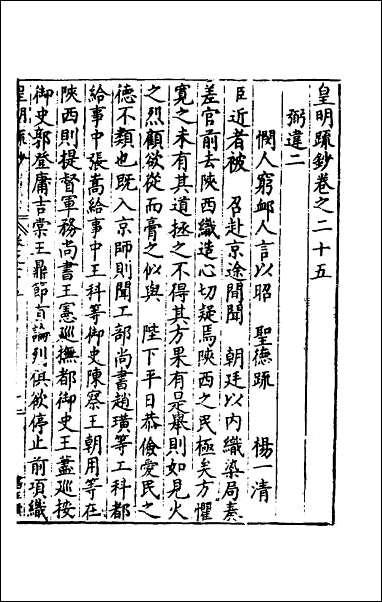 皇明疏鈔卷之二十五
弼違二
憫人窮卹人言以昭　聖德疏　楊一清
臣近者被　召赴京途間聞　朝廷以內織染局奏
差官前去陝西織造心切疑焉陝西之民極矣方懼
寬之未有其道拯之不得其方果有是舉則如見火
之烈顧欲從而膏之似與　陛下平日恭儉愛民之
德不類也既入京師則聞工部尚書趙璜等工科都
給事中張嵩給事中王科等御史陳察王朝用等在
陝西則提督軍務尚書王憲巡撫都御史王藎巡按
御史郭登庸吉棠王鼎節奏論列俱欲停止前項織
皇明疏鈔